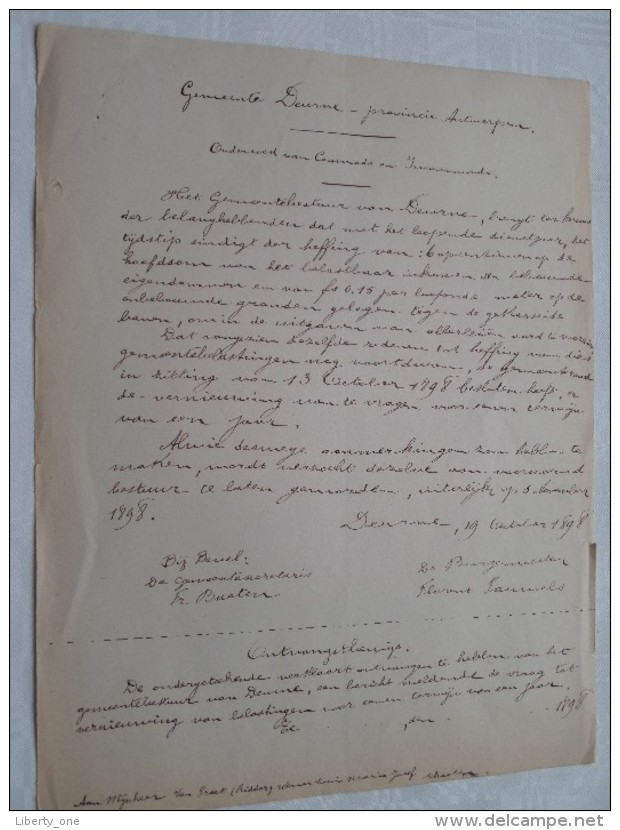 Gemeente Deurne – provincie Antwerpen.
Onderzoek van Commodo en Incommodo.
Het Gemeentebestuur van Deurne, brengt ter kennis
der belanghebbenden dat met het loopende dienstjaar, het
tijdstip eindigt der heffing van: opcentiemen op de
hoofdsom van het belastbaar inkomen der bebouwde
eigendommen en van fr 0,15 per loopende meter op de
onbebouwde gronden gelegen tegen de gekasseide
banen, om in de uitgaven van allerleien aard te voorzien
Dat aangezien dezelfde redenen tot heffing van dies
gemeentebelastingen nog voortduren, de gemeenteraad
in zitting van 13 October 1898 besloten heeft, er
de vernieuwing van te vragen voor eenen termijn
van een jaar.
Al wie deswege aanmerkingen zou hebben te
maken, wordt verzocht dezelve aan voormeld
bestuur te laten geworden, uiterlijk op 5 November
1898.
Deurne, 19 October 1898
Bij Bevel:
De Gemeentesecretaris
Fr. Buaten
De Burgemeester
Florent Pauwels
Ontvangstbewijs.
De ondergeteekende verklaart ontvangen te hebben van het
gemeentebestuur van Deurne, een bericht meldende de vraag tot
vernieuwing van belastingen voor eenen termijn van een jaar.
Te , den 1898
Aan Mijnheer Van Praet (Ridder) Louis Maria Jozef
Liberty_one
delcampe.net